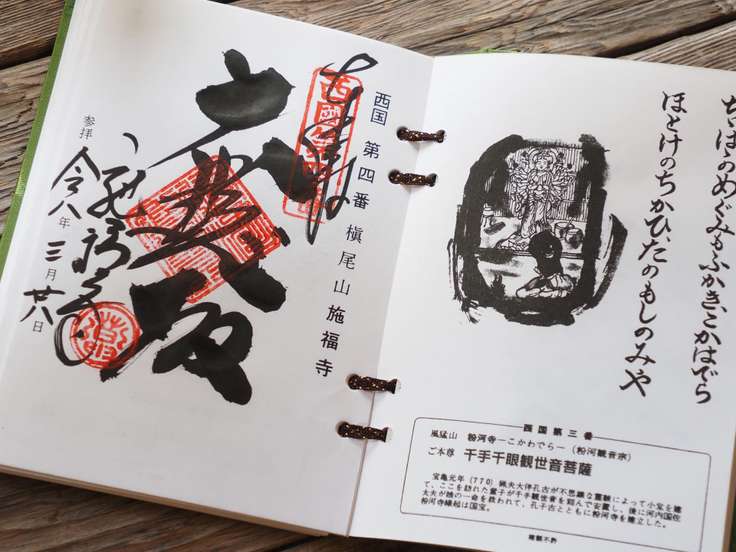 ちゝはゝのめぐみもふかきこかはでら
ほとけのちかひたのもしのみや
西国第三番
風猛山 粉河寺―こかわでら―（粉河観音宗）
ご本尊 千手千眼観世音菩薩
宝亀元年（770）猟夫大伴孔古が不思議な霊験によって小堂を建
て、ここを訪れた童子が千手観世音を刻んで安置し、後に河内国佐
太夫が娘の一命を救われて、孔子古とともに粉河寺を建立した。
粉河寺縁起は国宝。
複製不許
西国 第四番 槇尾山施福寺
施福寺
参拝 令八年三月廿八日